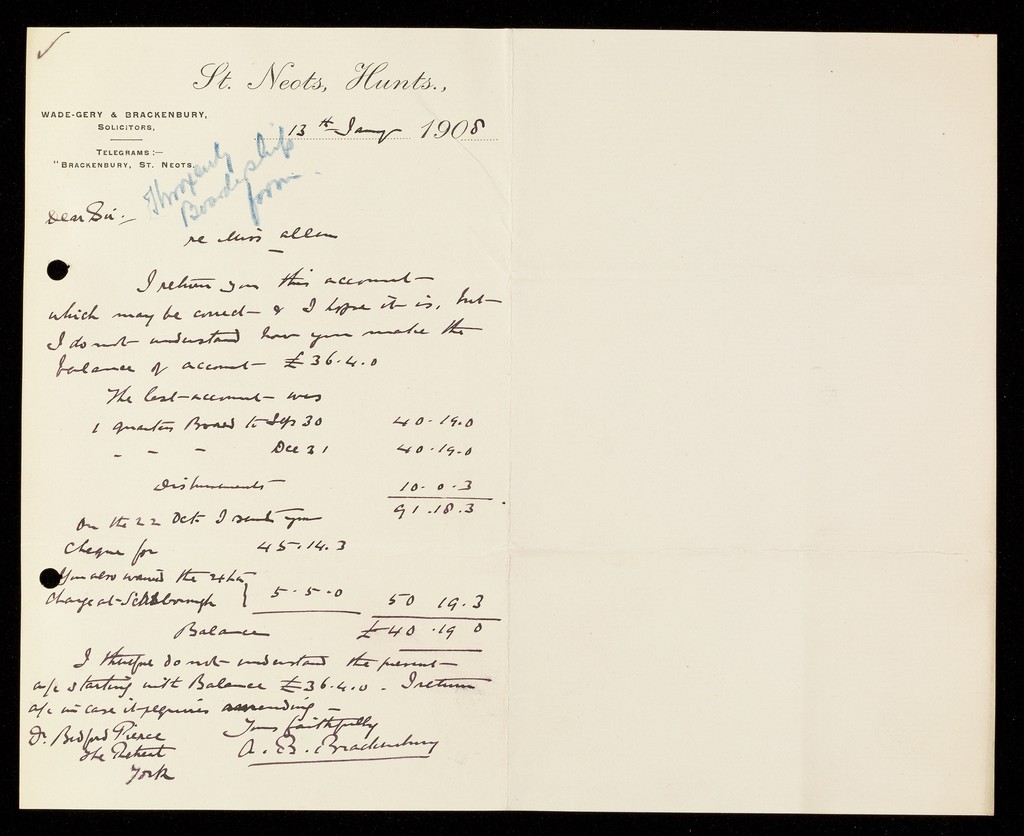 St. Neots, Hunts.,
WADE-GERY & BRACKENBURY,
SOLICITORS,
TELEGRAMS:—
"BRACKENBURY, ST. NEOTS.
13th Jany 1908
form
Dear Sir:—
re Miss Allen
I return you this account
which may be correct & I hope it is, but
I do not understand how you make the
balance of account £36.4.0
The last account was
1 quarters Board to Sep 30 40.19.0
" " " Dec 31 40.19.0
Disbursements 10.0.3
91.18.3
On the 22 Oct I sent you
cheque for 45.14.3
You also waived the extra
charge at Scarborough } 5.5.0 50 19.3
Balance £40.19 0
I therefore do not understand the present
a/c starting with Balance £36.4.0. I return
a/c in case it requires amending —
Yours faithfully
A. B. Brackenbury
Dr. Bedford Pierce
The Retreat
York